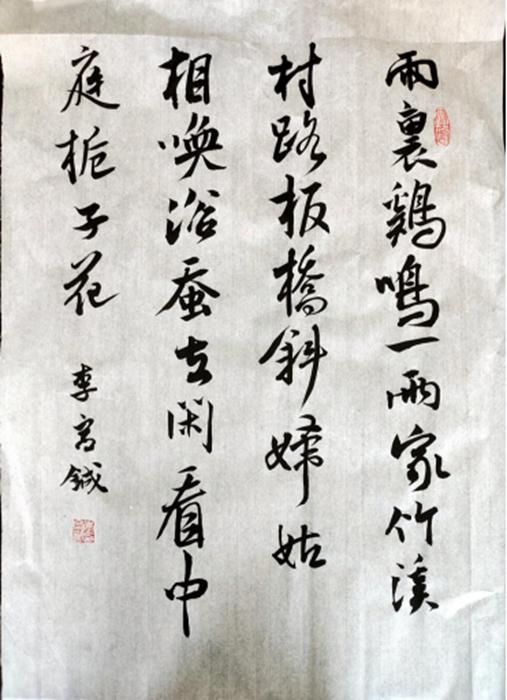 雨裏鷄鳴一兩家竹溪
村路板橋斜婦姑
相喚浴蚕去閑看中
庭栀子花
李